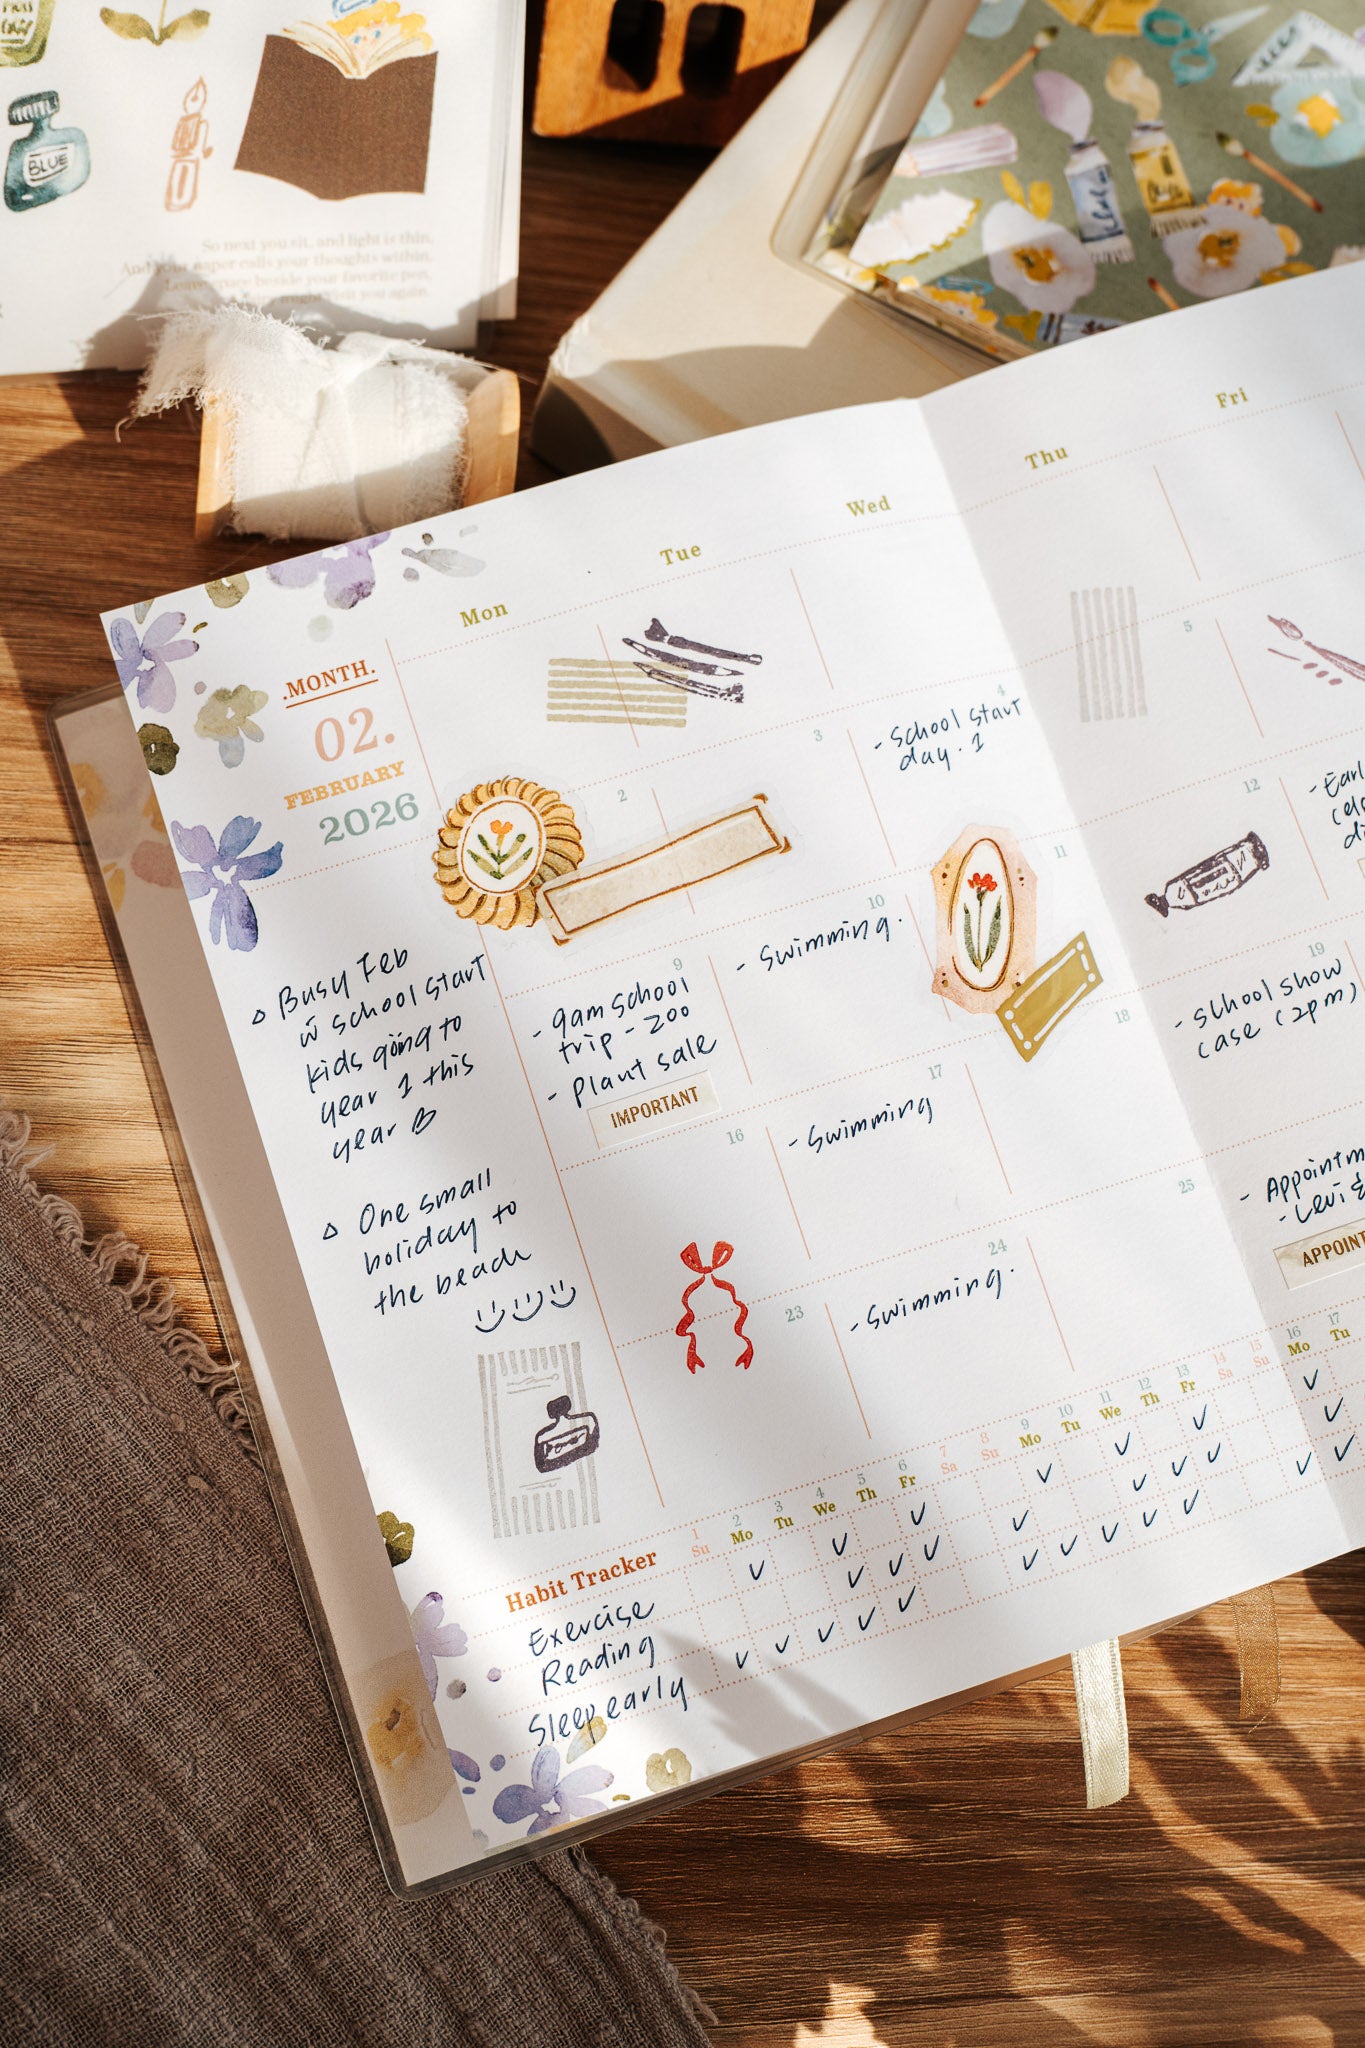 BLUE
So next you sit, and light is thin,
And your paper calls your thoughts within.
Leave space beside your favorite pen,
might visit you again.
Mon
Tue
Wed
Thu
Fri
.MONTH.
02.
FEBRUARY
2026
△ Busy Feb
w̄ school start
kids going to
year 1 this
year
△ One small
holiday to
the beach
2
3
4
- School start
day. 1
5
9
- 9am school
trip - zoo
- Plant sale
IMPORTANT
10
- Swimming.
11
12
16
17
- Swimming
18
19
- School show
case (2pm)
23
24
- Swimming.
25
- Appointm
- Levi &
APPOINT
Habit Tracker
1 2 3 4 5 6 7 8 9 10 11 12 13 14 15 16 17
Su Mo Tu We Th Fr Sa Su Mo Tu We Th Fr Sa Su Mo Tu
Exercise
Reading
Sleep early